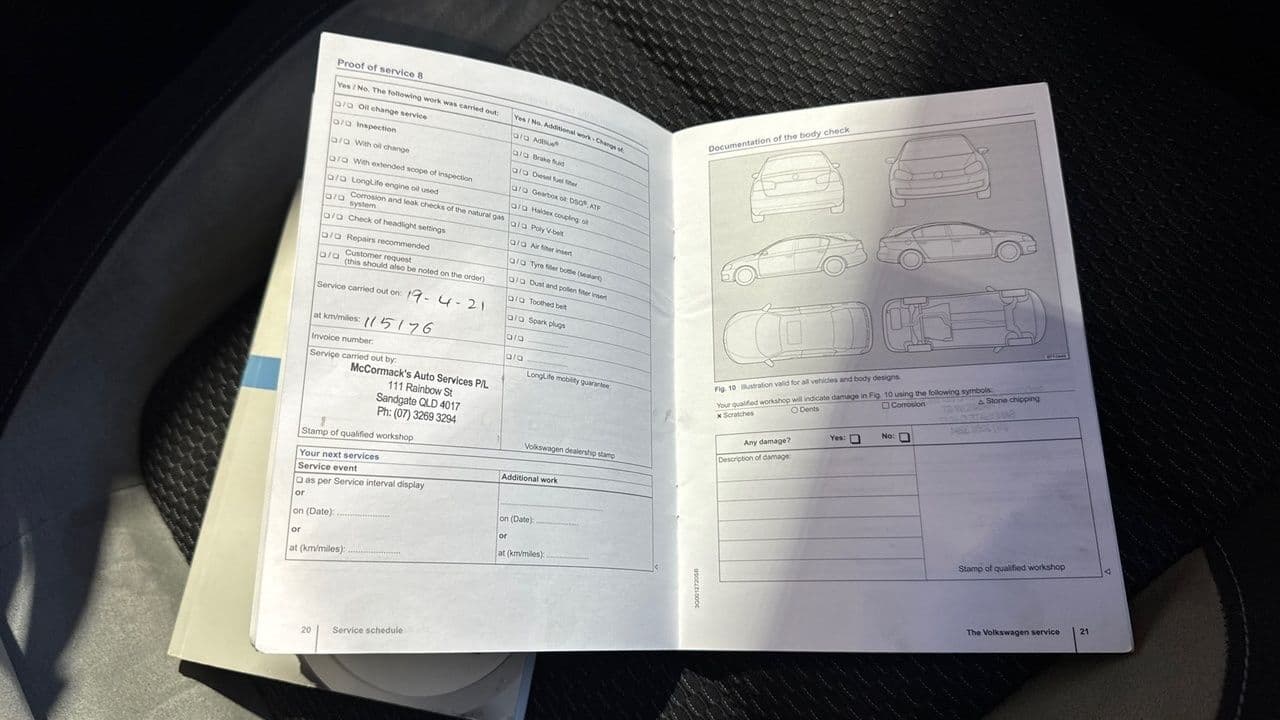 Proof of service 8
Yes / No. The following work was carried out:
❑/❑ Oil change service
❑/❑ Inspection
❑/❑ With oil change
❑/❑ With extended scope of inspection
❑/❑ LongLife engine oil used
❑/❑ Corrosion and leak checks of the natural gas
system
❑/❑ Check of headlight settings
❑/❑ Repairs recommended
❑/❑ Customer request
(this should also be noted on the order)
Service carried out on: 19-4-21
at km/miles: 115176
Invoice number:
Service carried out by:
McCormack's Auto Services P/L
111 Rainbow St
Sandgate QLD 4017
Ph: (07) 3269 3294
Stamp of qualified workshop
Yes / No. Additional work - Change of:
❑/❑ AdBlue®
❑/❑ Brake fluid
❑/❑ Diesel fuel filter
❑/❑ Gearbox oil: DSG®, ATF
❑/❑ Haldex coupling: oil
❑/❑ Poly V-belt
❑/❑ Air filter insert
❑/❑ Tyre filler bottle (sealant)
❑/❑ Dust and pollen filter insert
❑/❑ Toothed belt
❑/❑ Spark plugs
❑/❑
❑/❑
LongLife mobility guarantee:
Volkswagen dealership stamp
Your next services
Service event
❑ as per Service interval display
or
on (Date):
or
at (km/miles):
Additional work
on (Date):
or
at (km/miles):
20 Service schedule
Documentation of the body check
Fig. 10 Illustration valid for all vehicles and body designs.
Your qualified workshop will indicate damage in Fig. 10 using the following symbols:
× Scratches ○ Dents □ Corrosion △ Stone chipping
Any damage? Yes: ❑ No: ❑
Description of damage:
Stamp of qualified workshop
3G0012720SB
The Volkswagen service 21